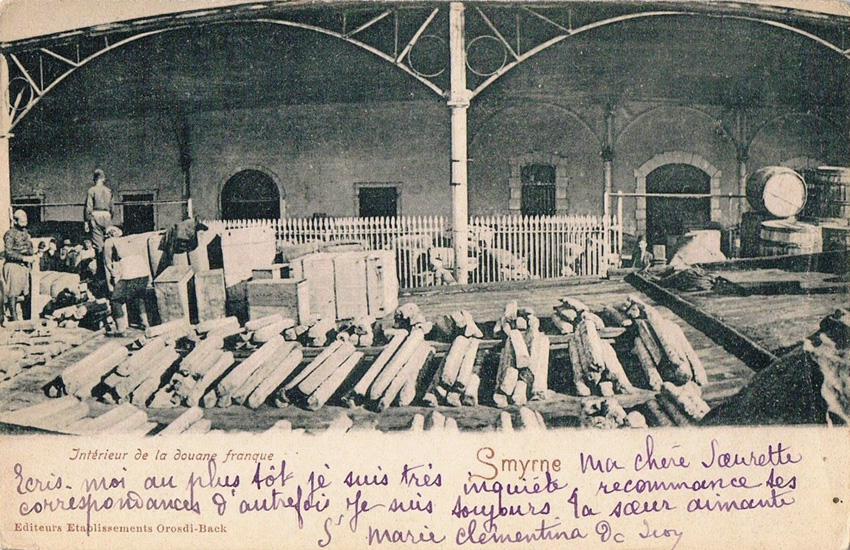 Intérieur de la douane franque
Smyrne
Ma chère Sœurette
Ecris-moi au plus tôt je suis très inquiéte recommance ses
correspondances d'autrefois Je suis toujours ta sœur aimante
Editeurs Etablissements Orosdi-Back
Sr Marie Clémentina De